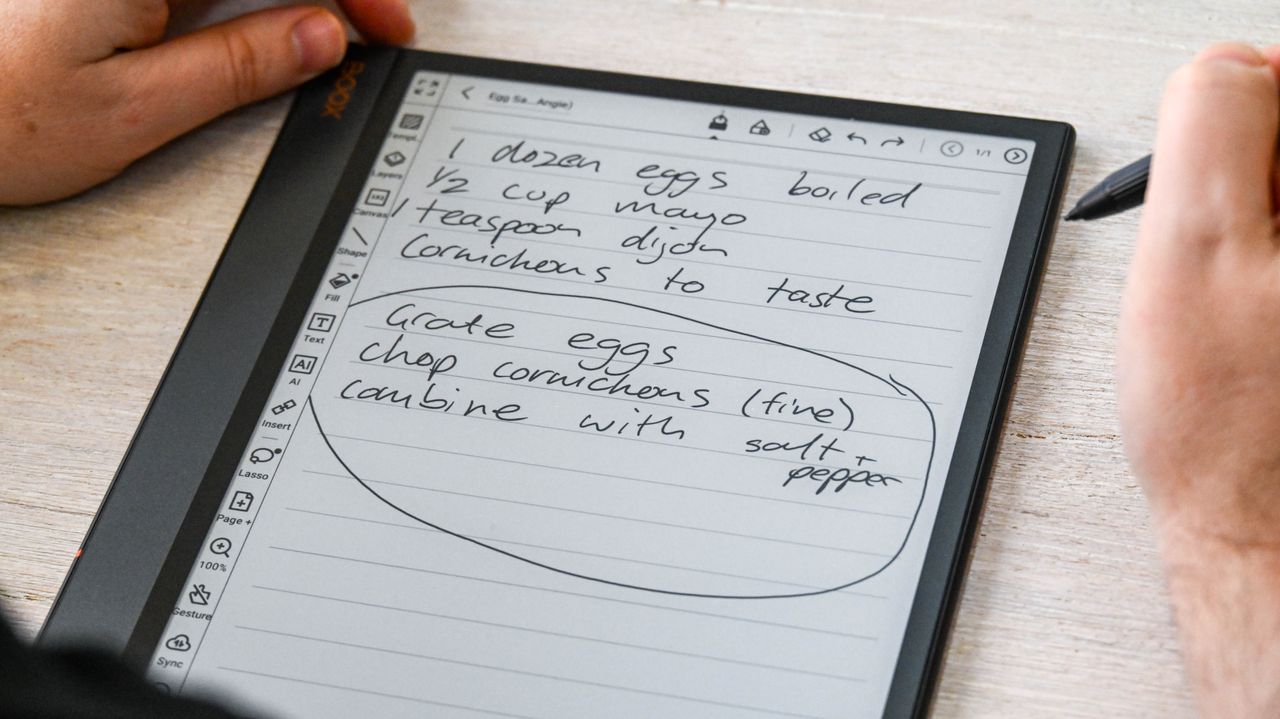 BOOX
Egg Sa...Angie)
1/1
1 dozen eggs boiled
1/2 cup mayo
1 teaspoon dijon
Cornichons to taste
Grate eggs
chop cornichons (fine)
combine with salt +
pepper
Templ.
Layers
Canvas
Shape
Fill
Text
AI
AI
Insert
Lasso
Page +
100%
Gesture
Sync